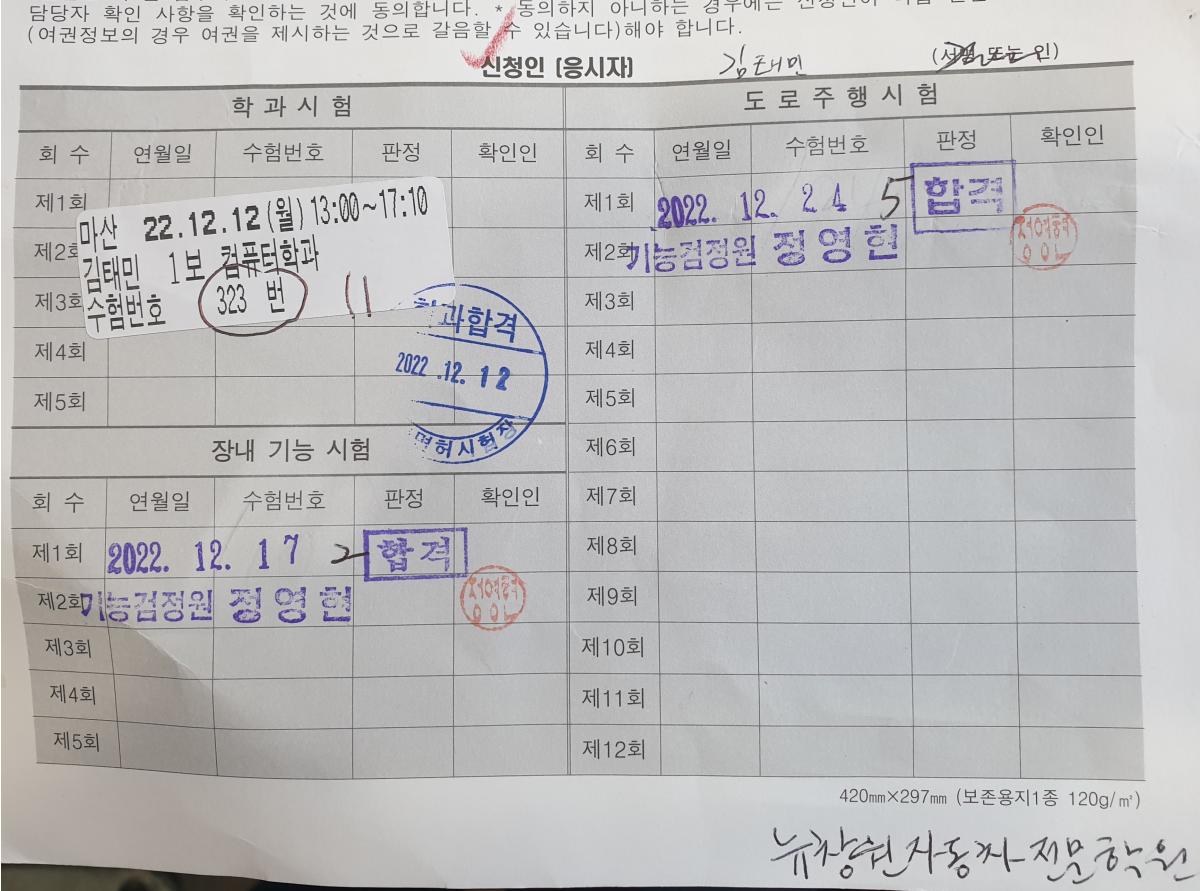 담당자 확인 사항을 확인하는 것에 동의합니다. * 동의하지 아니하는 경우에는 신청인이
(여권정보의 경우 여권을 제시하는 것으로 갈음할 수 있습니다)해야 합니다.
신청인 (응시자) 김태민 (서명 또는 인)
학 과 시 험
회 수 연월일 수험번호 판정 확인인
제1회
제2회
제3회
제4회
제5회
마산 22.12.12(월) 13:00~17:10
김태민 1보 컴퓨터학과
수험번호 323 번
11
학과합격
2022 .12. 12
면허시험장
장내 기능 시험
회 수 연월일 수험번호 판정 확인인
제1회 2022. 12. 17 2 합격
제2회 기능검정원 정영현
제3회
제4회
제5회
도 로 주 행 시 험
회 수 연월일 수험번호 판정 확인인
제1회 2022. 12. 24 5 합격
제2회 기능검정원 정영현
제3회
제4회
제5회
제6회
제7회
제8회
제9회
제10회
제11회
제12회
420㎜×297㎜ (보존용지1종 120g/㎡)
뉴창원자동차전문학원